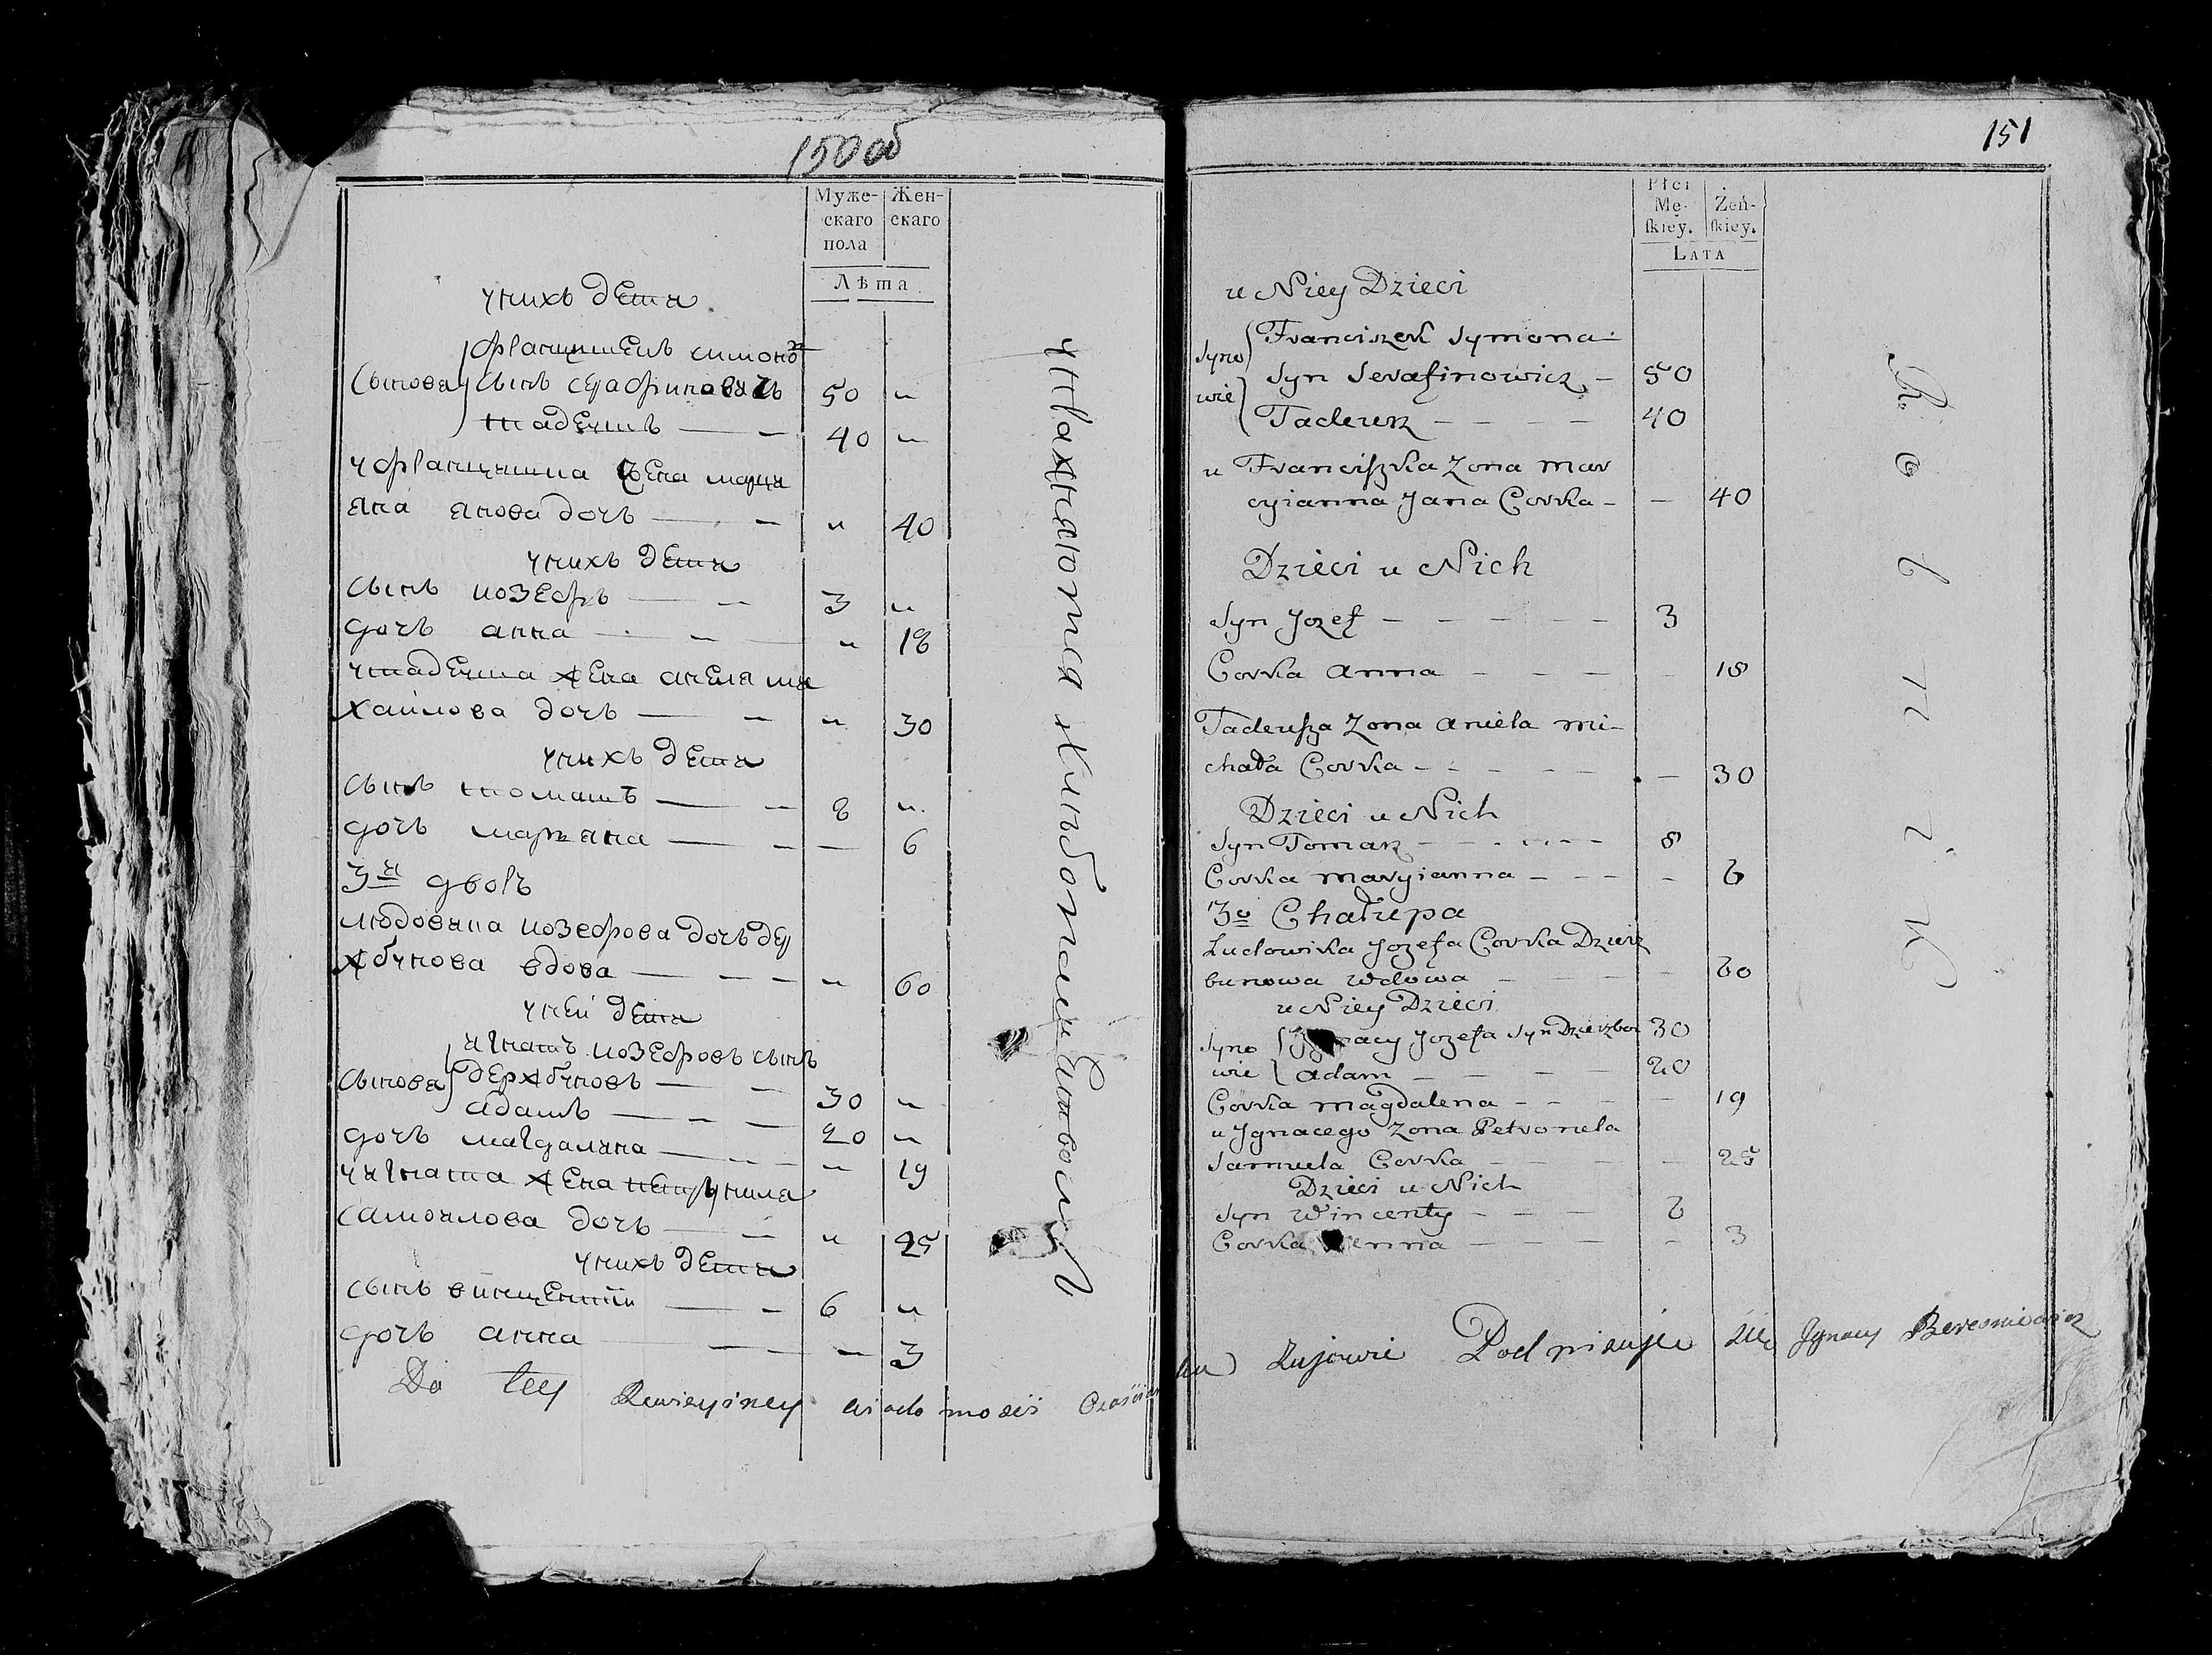 150 об
Муже-
скаго
пола
Жен-
скаго
Лѣта
унихъ дети
Францишекъ симоно
Сынова сынъ серафиновичъ 50 "
тадеушъ — — 40 "
у францишка жена марци
яна янова дочь — — " 40
унихъ дети
сынъ иозефъ — — 3 "
дочь анна — — " 18
утадеуша жена анеля ми
хайлова дочь — — " 30
унихъ дети
сынъ томашъ — — 8 "
дочь марьяна — — — 6
3я дворъ
людовика иозефова дочь дер
жбунова вдова — — — " 60
уней дети
игнатъ иозефовъ сынъ
сынова держбуновъ — — 30 "
адамъ — — — 20 "
дочь магдалина — — — " 19
уигната жена петрунила
самоилова дочь — — " 25
унихъ дети
сынъ винцентій — — 6 "
дочь анна — — — 3
упражняются
Do tey Rewizyiney wiadomosci
151
Płci
Mę-
ſkiey.
Żeń-
ſkiey.
LATA
u Niey Dzieci
Syno Franciszek Symona
wie Syn Serafinowicz — 50
Tadeusz — — — — 40
u Franciſzka Zona mar
cyianna Jana Corka — — 40
Dzieci u Nich
Syn Jozef — — — — — 3
Corka anna — — — — 18
Tadeuſza Zona aniela mi-
chała Corka — — — — — 30
Dzieci u Nich
Syn Tomasz — — — — 8
Corka maryianna — — — — 6
3o Chałupa
Ludowika Jozefa Corka Dzierz
bunowa wdowa — — — — 60
u Niey Dzieci
Syno Ignacy Jozefa Syn Dzierzbun 30
wie adam — — — — 20
Corka magdalena — — — — 19
u Ignacego Zona Petronela
Samuela Corka — — — — 25
Dzieci u Nich
Syn Wincenty — — — 6
Corka — — — — 3
Podpisuje się Ignacy